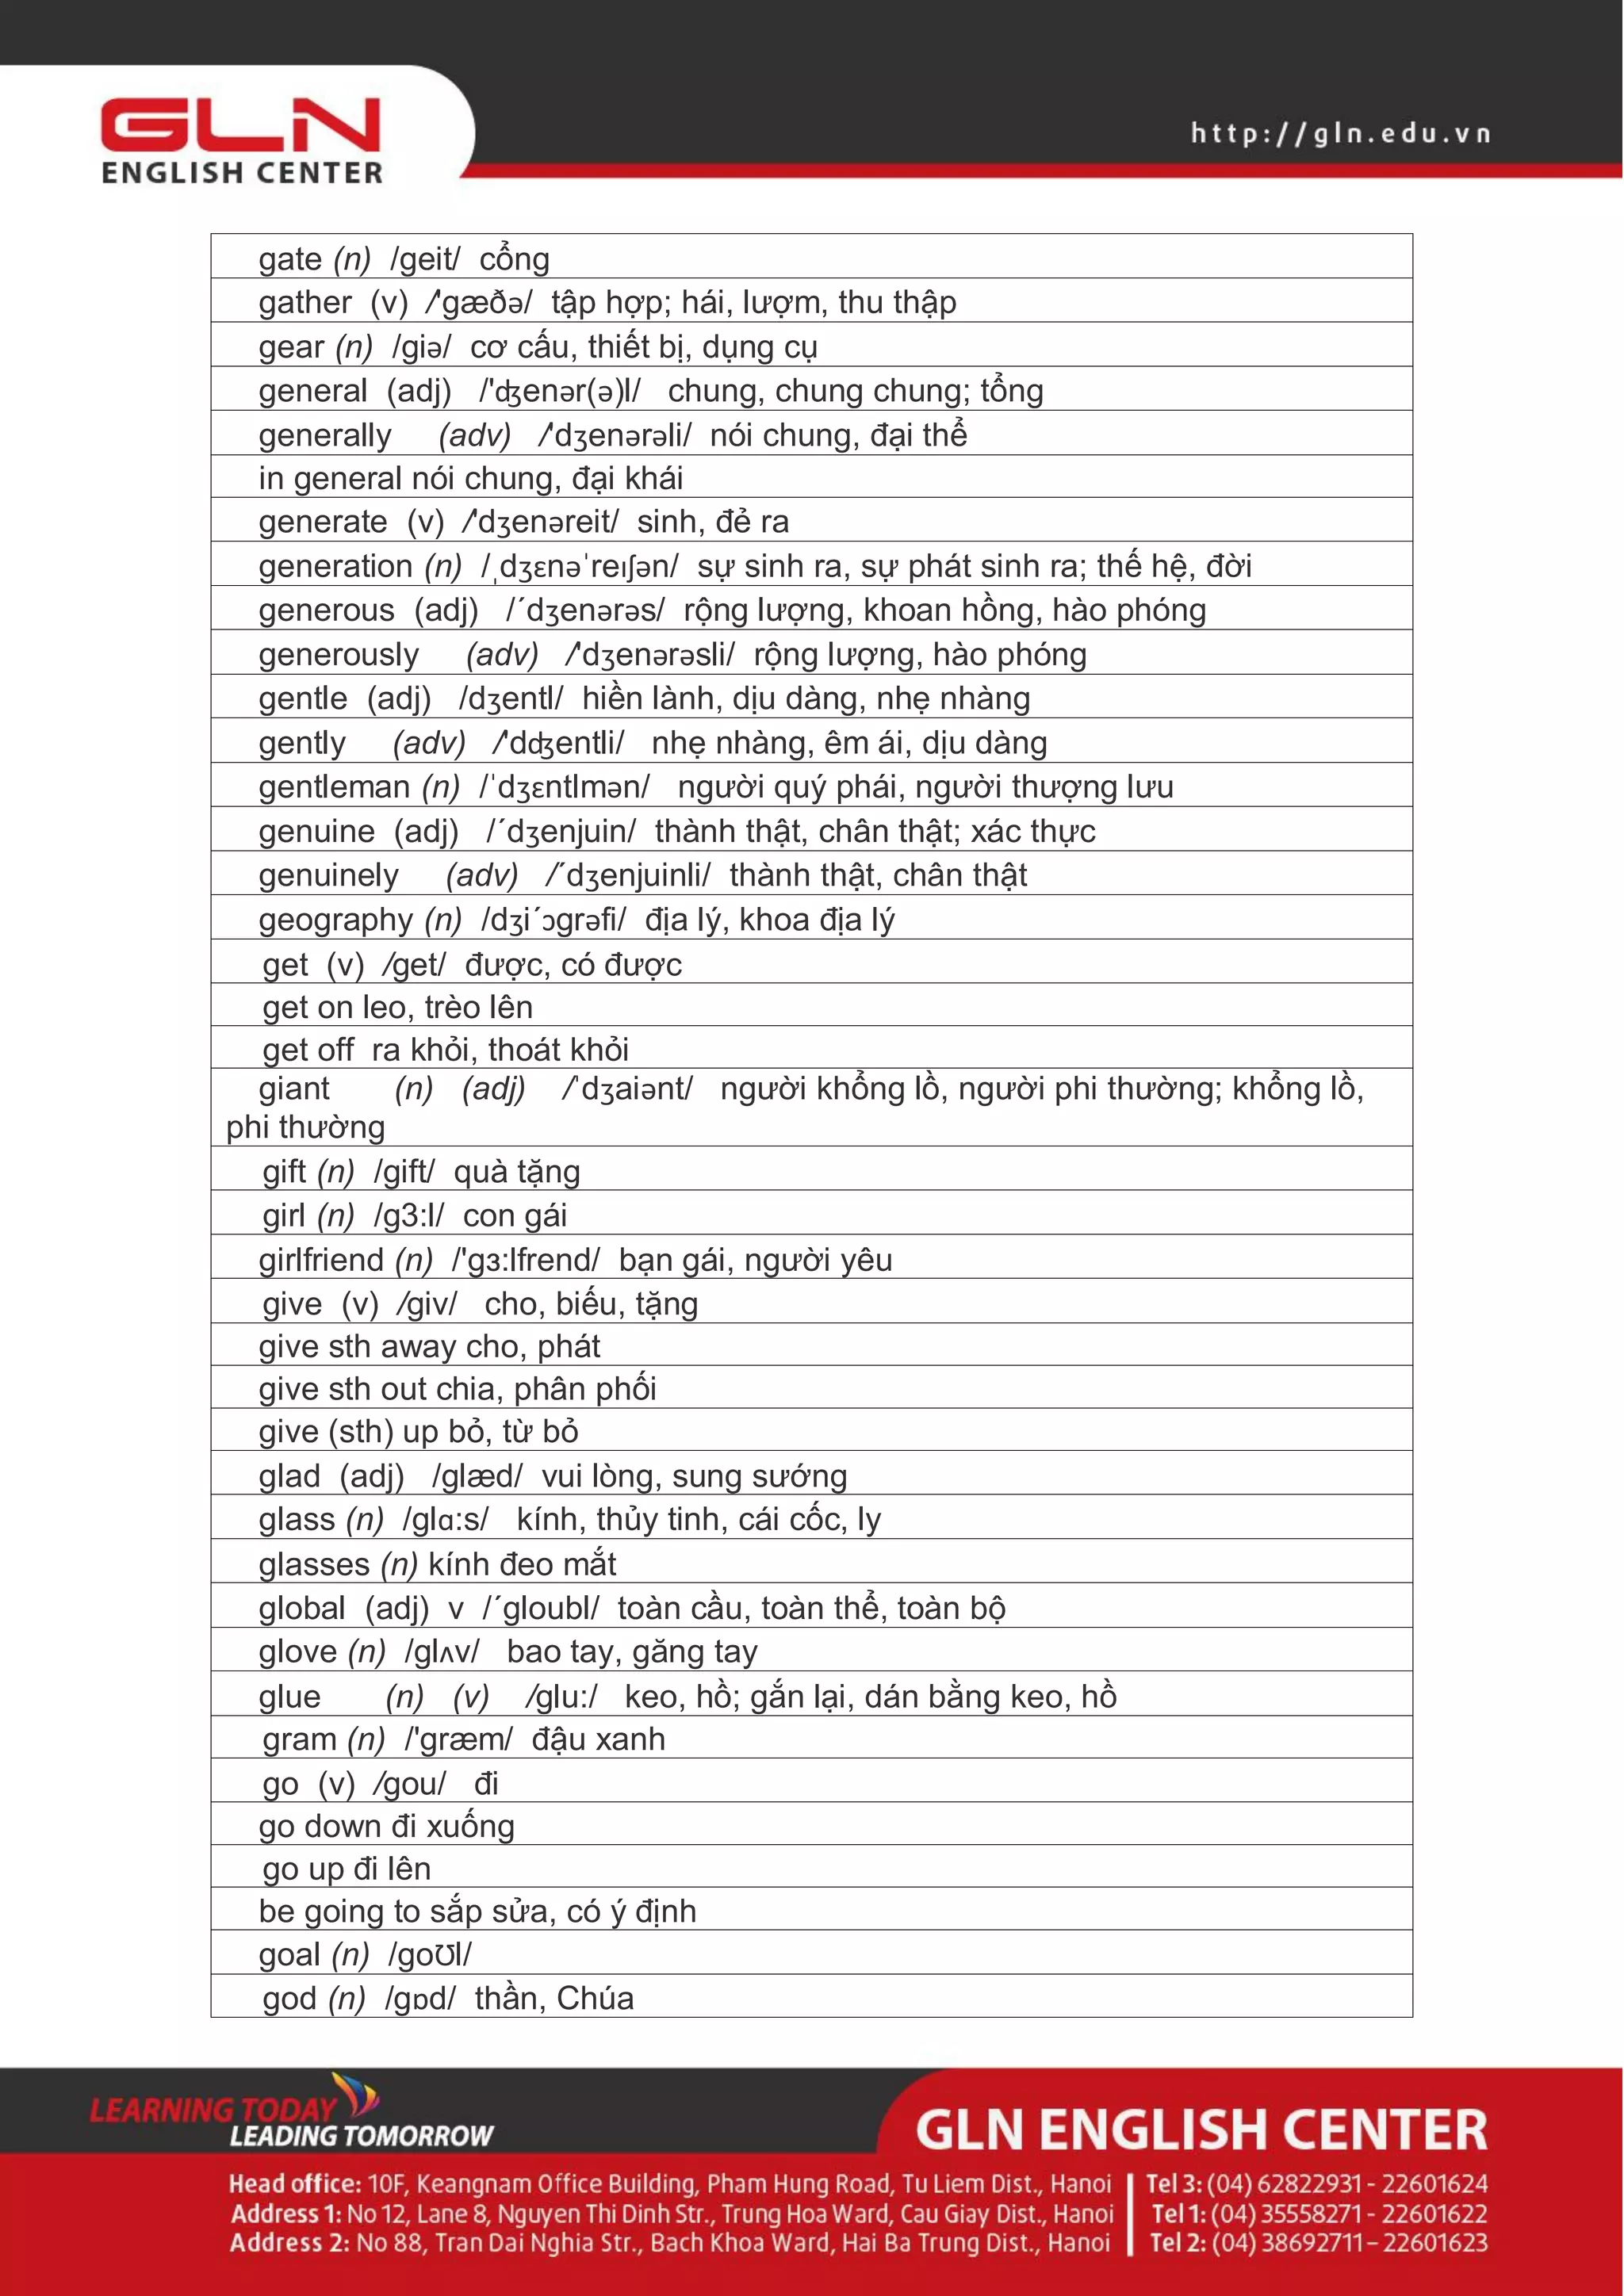 GLN
ENGLISH CENTER
http://gln.edu.vn
gate (n) /geit/ cổng
gather (v) /'gæðə/ tập hợp; hái, lượm, thu thập
gear (n) /giə/ cơ cấu, thiết bị, dụng cụ
general (adj) /'ʤenər(ə)l/ chung, chung chung; tổng
generally (adv) /'dʒenərəli/ nói chung, đại thể
in general nói chung, đại khái
generate (v) /'dʒenəreit/ sinh, đẻ ra
generation (n) /ˌdʒɛnəˈreɪʃən/ sự sinh ra, sự phát sinh ra; thế hệ, đời
generous (adj) /´dʒenərəs/ rộng lượng, khoan hồng, hào phóng
generously (adv) /'dʒenərəsli/ rộng lượng, hào phóng
gentle (adj) /dʒentl/ hiền lành, dịu dàng, nhẹ nhàng
gently (adv) /'dʤentli/ nhẹ nhàng, êm ái, dịu dàng
gentleman (n) /ˈdʒɛntlmən/ người quý phái, người thượng lưu
genuine (adj) /´dʒenjuin/ thành thật, chân thật; xác thực
genuinely (adv) /´dʒenjuinli/ thành thật, chân thật
geography (n) /dʒi´ɔgrəfi/ địa lý, khoa địa lý
get (v) /get/ được, có được
get on leo, trèo lên
get off ra khỏi, thoát khỏi
giant (n) (adj) /ˈdʒaiənt/ người khổng lồ, người phi thường; khổng lồ,
phi thường
gift (n) /gift/ quà tặng
girl (n) /g3:l/ con gái
girlfriend (n) /'gɜ:lfrend/ bạn gái, người yêu
give (v) /giv/ cho, biếu, tặng
give sth away cho, phát
give sth out chia, phân phối
give (sth) up bỏ, từ bỏ
glad (adj) /glæd/ vui lòng, sung sướng
glass (n) /glɑ:s/ kính, thủy tinh, cái cốc, ly
glasses (n) kính đeo mắt
global (adj) v /´gloubl/ toàn cầu, toàn thể, toàn bộ
glove (n) /glʌv/ bao tay, găng tay
glue (n) (v) /glu:/ keo, hồ; gắn lại, dán bằng keo, hồ
gram (n) /'græm/ đậu xanh
go (v) /gou/ đi
go down đi xuống
go up đi lên
be going to sắp sửa, có ý định
goal (n) /goƱl/
god (n) /gɒd/ thần, Chúa
LEARNING TODAY
LEADING TOMORROW
GLN ENGLISH CENTER
Head office: 10F, Keangnam Office Building, Pham Hung Road, Tu Liem Dist., Hanoi | Tel 3: (04) 62822931 - 22601624
Address 1: No 12, Lane 8, Nguyen Thi Dinh Str., Trung Hoa Ward, Cau Giay Dist., Hanoi | Tel 1: (04) 35558271 - 22601622
Address 2: No 88, Tran Dai Nghia Str., Bach Khoa Ward, Hai Ba Trung Dist., Hanoi | Tel 2: (04) 38692711 – 22601623